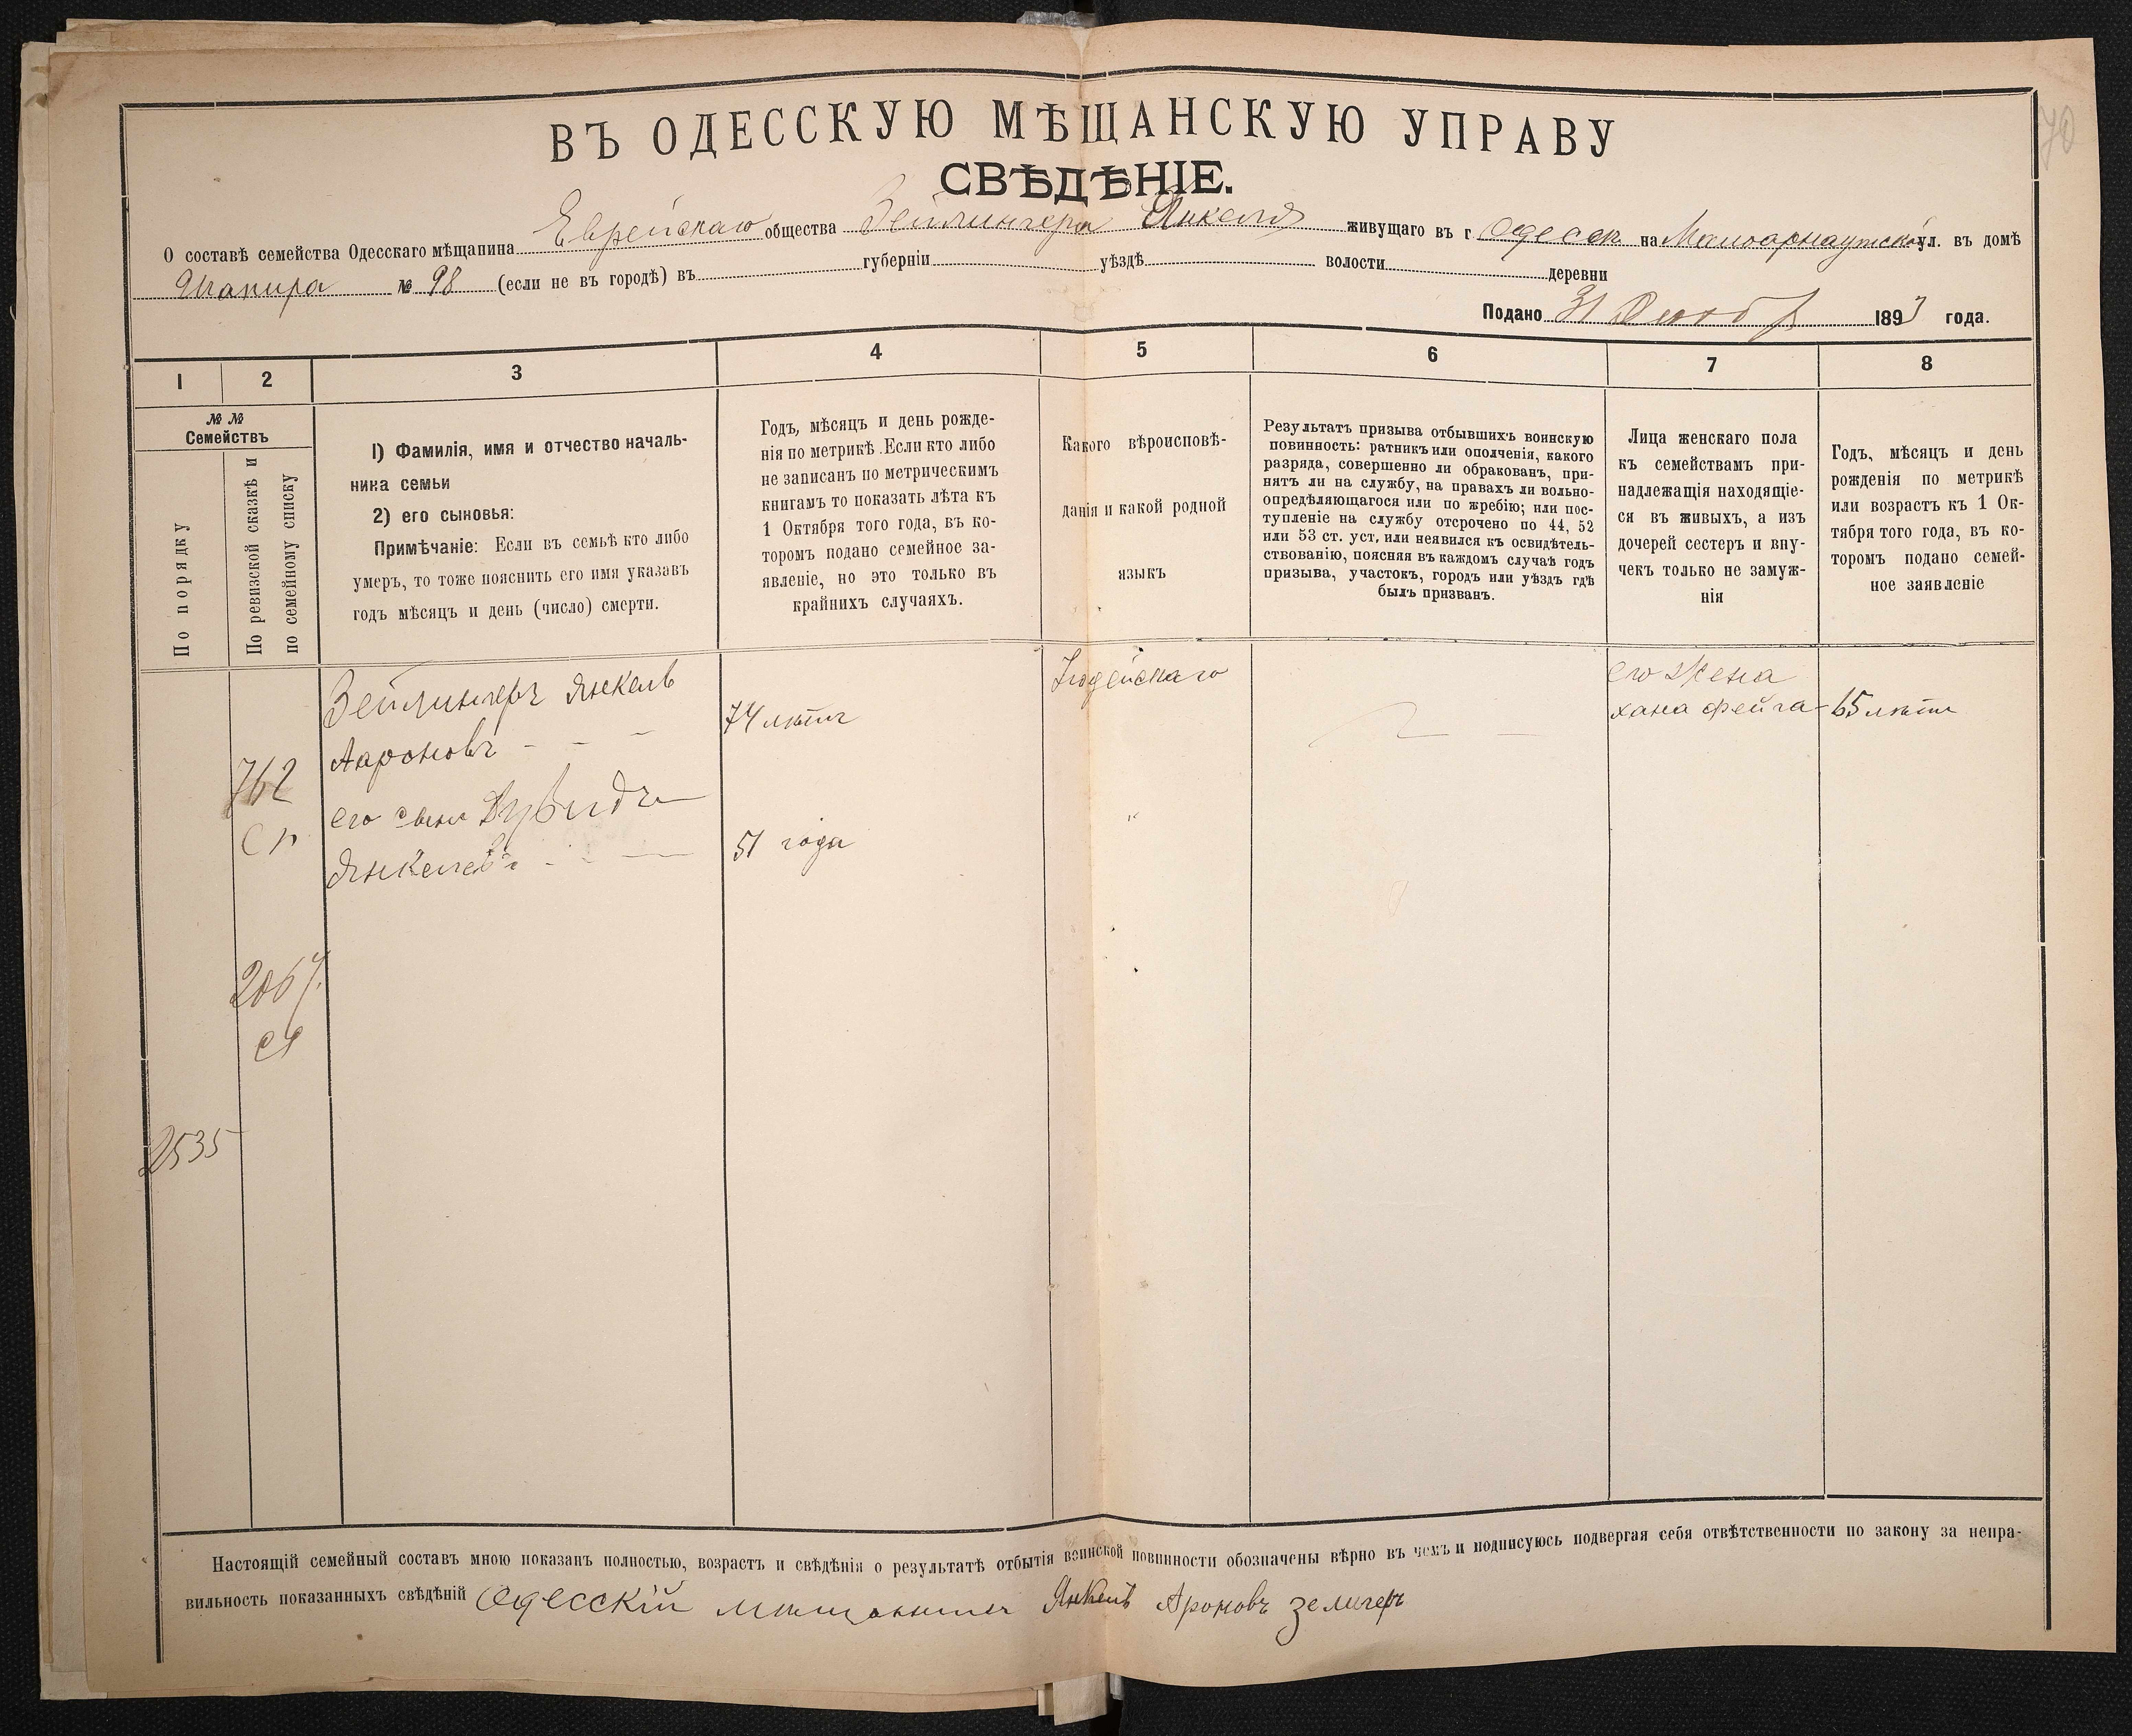 70
ВЪ ОДЕССКУЮ МѢЩАНСКУЮ УПРАВУ
СВѢДѢНІЕ.
О составѣ семейства Одесскаго мѣщанина Еврейскаго общества Зейлингера Янкеля живущаго въ г Одессѣ на Малоарнаутской ул. въ домѣ
Шапира № 98 (если не въ городѣ) въ губерніи уѣздѣ волости деревни
Подано 31 1893 года.
1 2 3 4 5 6 7 8
№ №
Семействъ
По порядку
По ревизской сказкѣ и
по семейному списку
1) Фамилія, имя и отчество началь-
ника семьи
2) его сыновья:
Примѣчаніе: Если въ семьѣ кто либо
умеръ, то тоже пояснить его имя указавъ
годъ мѣсяцъ и день (число) смерти.
Годъ, мѣсяцъ и день рожде-
нія по метрикѣ. Если кто либо
не записанъ по метрическимъ
книгамъ то показать лѣта къ
1 Октября того года, въ ко-
торомъ подано семейное за-
явленіе, но это только въ
крайнихъ случаяхъ.
Какого вѣроисповѣ-
данія и какой родной
языкъ
Результатъ призыва отбывшихъ воинскую
повинность: ратникъ или ополченія, какого
разряда, совершенно ли обракованъ, при-
нятъ ли на службу, на правахъ ли вольно-
опредѣляющагося или по жребію; или пос-
тупленіе на службу отсрочено по 44, 52
или 53 ст. уст. или неявился къ освидѣтель-
ствованію, поясняя въ каждомъ случаѣ годъ
призыва, участокъ, городъ или уѣздъ гдѣ
былъ призванъ.
Лица женскаго пола
къ семействамъ при-
надлежащія находящіе-
ся въ живыхъ, а изъ
дочерей сестеръ и вну-
чекъ только не замуж-
нія
Годъ, мѣсяцъ и день
рожденія по метрикѣ
или возрастъ къ 1 Ок-
тября того года, въ ко-
торомъ подано семей-
ное заявленіе
Зейлингеръ Янкель
Аароновъ - - -
его сынъ Дувидъ
Янкелевъ - -
74 лѣтъ
51 года
Іюдейскаго
его жена
хана фейга - 65 лѣтъ
762
2067.
2535
Настоящій семейный составъ мною показанъ полностью, возрастъ и свѣдѣнія о результатѣ отбытія воинской повинности обозначены вѣрно въ чемъ и подписуюсь подвергая себя отвѣтственности по закону за непра-
вильность показанныхъ свѣдѣній Одесскій мѣщанинъ Янкель Ароновъ Зелигеръ